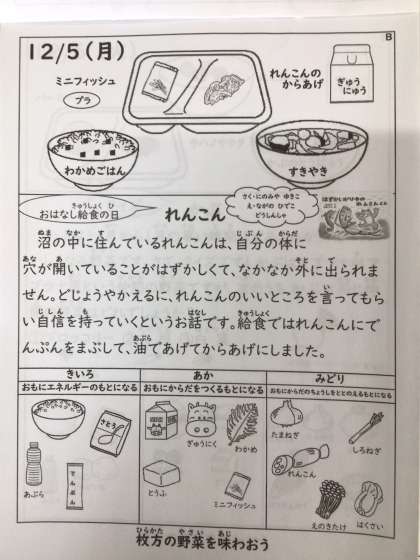 B
12/5(月)
ミニフィッシュ
プラ
れんこんの
からあげ
ぎゅう
にゅう
わかめごはん
すきやき
きゅうしょく ひ
おはなし給食の日
れんこん
さく・にのみや ゆきこ
え・ながの ひでこ
どうしんしゃ
はずかしがりやの
れんこんくん
ぬま なか す じぶん からだ
沼の中に住んでいるれんこんは、自分の体に
あな あ そと で
穴が開いていることがはずかしくて、なかなか外に出られま
い
せん。どじょうやかえるに、れんこんのいいところを言ってもら
じしん も はなし きゅうしょく
い自信を持っていくというお話です。給食ではれんこんにで
あぶら
んぷんをまぶして、油であげてからあげにしました。
きいろ
おもにエネルギーのもとになる
あか
おもにからだをつくるもとになる
みどり
おもにからだのちょうしをととのえるもとになる
さとう
あぶら
でんぷん
ぎゅうにく
わかめ
とうふ
ミニフィッシュ
たまねぎ
しろねぎ
れんこん
えのきたけ
はくさい
ひらかた やさい あじ
枚方の野菜を味わおう